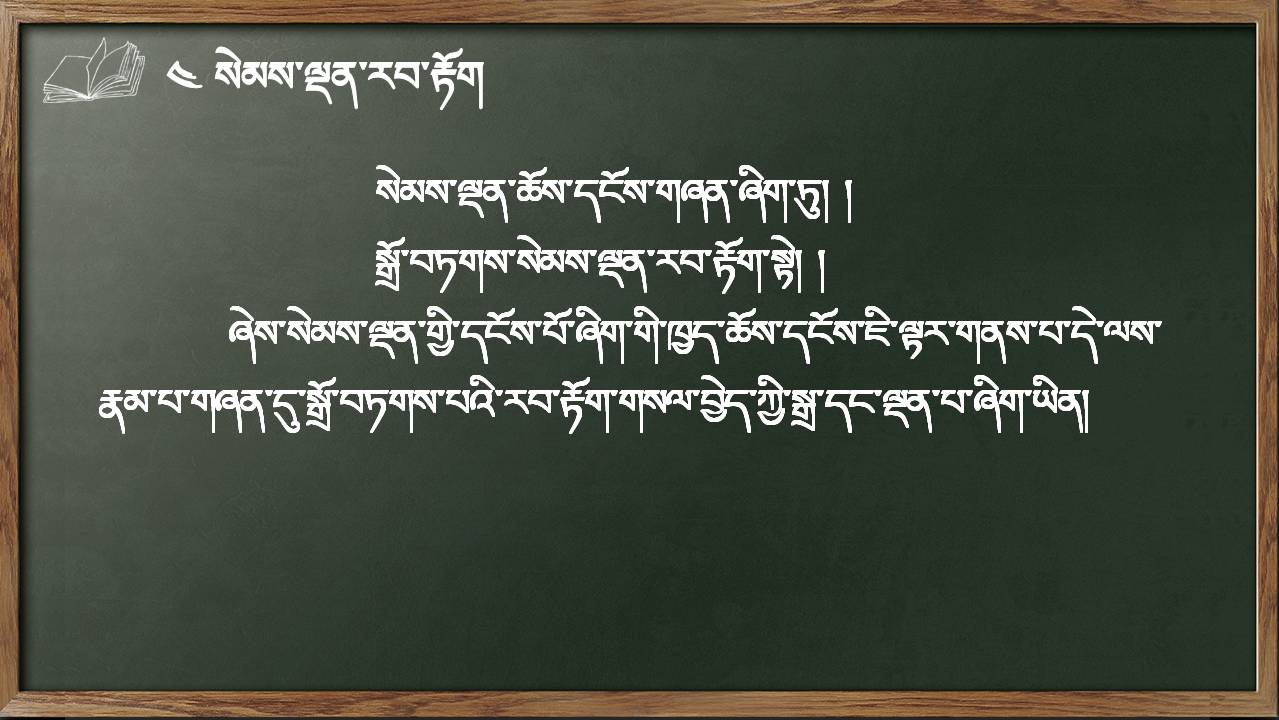 ༼ སེམས་ལྡན་རབ་རྟོག
སེམས་ལྡན་ཆོས་དངོས་གཞན་ཞིག་ཏུ། །
སྒྲོ་བཏགས་སེམས་ལྡན་རབ་རྟོག་སྟེ། །
ཞེས་སེམས་ལྡན་གྱི་དངོས་པོ་ཞིག་གི་ཁྱད་ཆོས་དངོས་ཇི་ལྟར་གནས་པ་དེ་ལས་
རྣམ་པ་གཞན་དུ་སྒྲོ་བཏགས་པའི་རབ་རྟོག་གསལ་བྱེད་ཀྱི་སྒྲ་དང་ལྡན་པ་ཞིག་ཡིན།